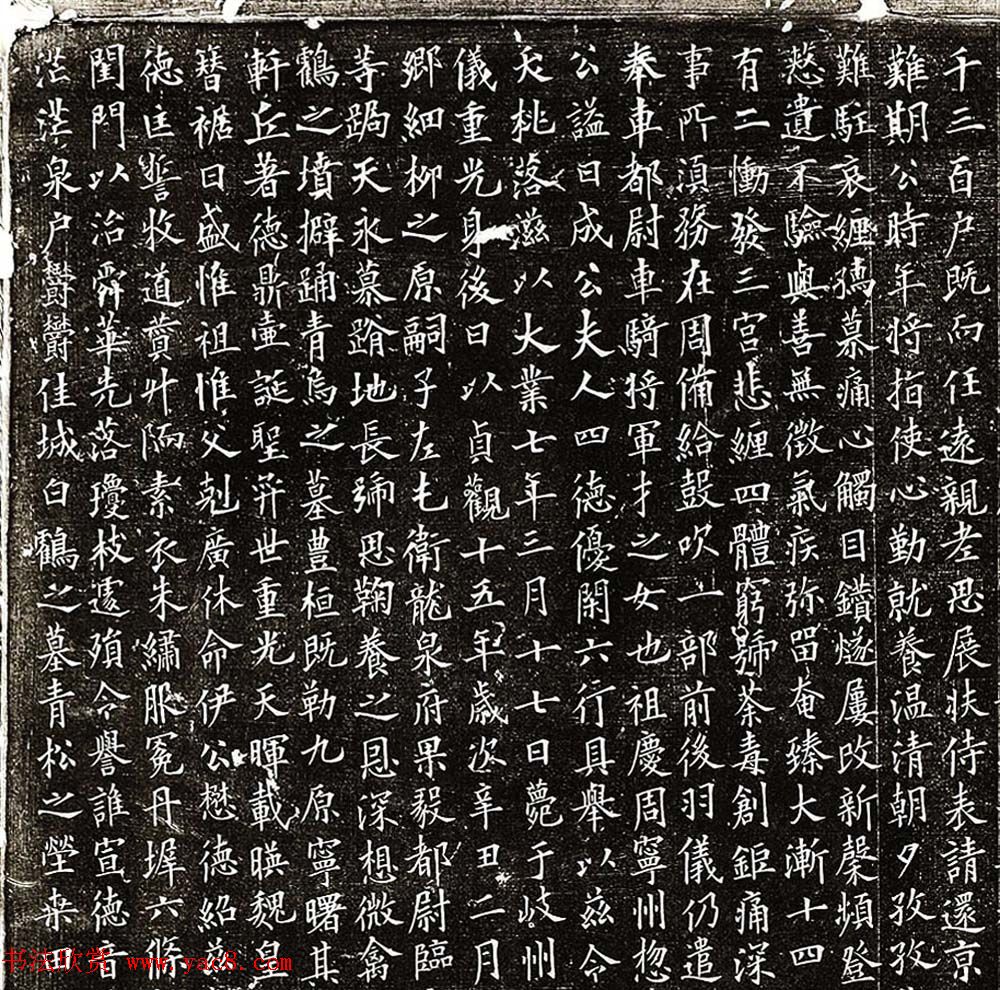 千三百户既而任遠親老思展扶侍表請還京
難期公時年將指使心勤就養温清朝夕孜孜
難駐哀纏孺慕痛心觸目鑽燧屢改新穀頻登
憖遺不驗與善無徵氣疾弥留奄臻大漸十四
有二慟發三宮悲纏四體窮號荼毒創鉅痛深
事所湏務在周備給鼓吹一部前後羽儀仍遣
奉車都尉車騎將軍才之女也祖慶周寧州惣
公謚曰成公夫人四德優閑六行具舉以兹令
夭桃落滋以大業七年三月十七日薨于岐州
儀重光身後曰以貞觀十五年歲次辛丑二月
鄉細柳之原嗣子左屯衛龍泉府果毅都尉臨
等跼天永慕蹐地長號思鞠養之恩深想微禽
鶴之墳擗踊青烏之墓豊桓既勒九原寧曙其
軒丘著德鼎壷誕聖弈世重光天暉載暎魏皇
簪裾日盛惟祖惟父剋廣休命伊公懋德紹
德匡誓收道賛升陑素衣朱繡服冕丹墀六條
閨門以治舜華先落瓊枝遽殞令譽誰宣德音
茫茫泉户欝欝佳城白鶴之墓青松之塋
书法欣赏 www.yac8.com